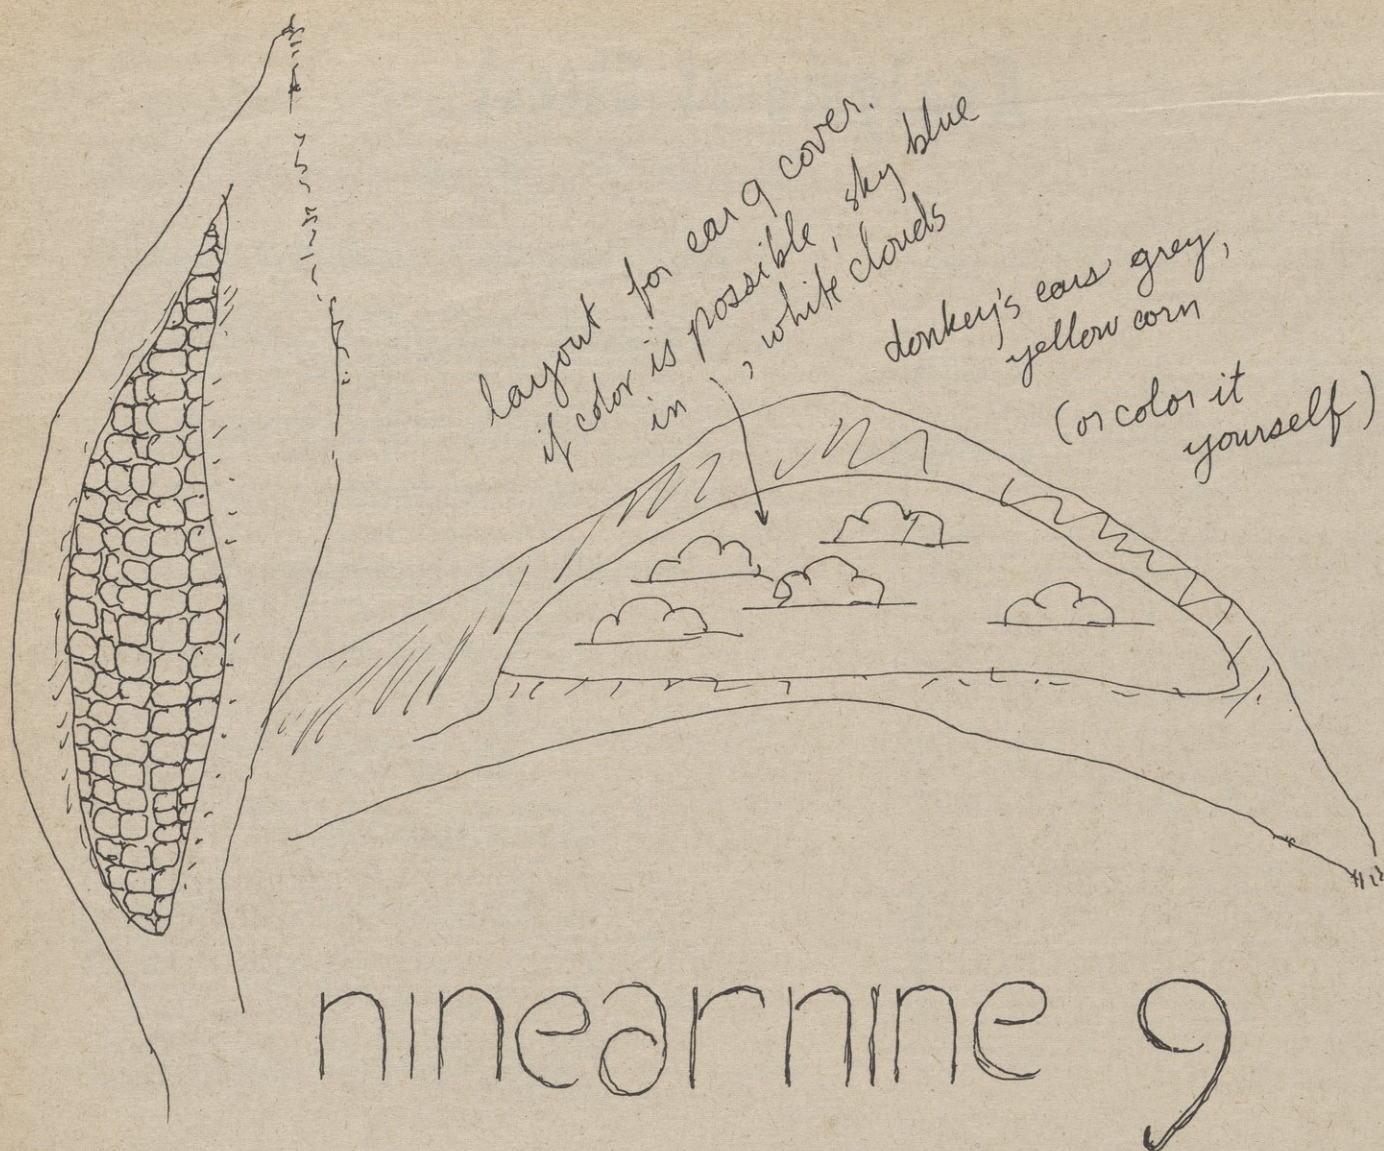 layout for ear 9 cover.
if color is possible, sky blue
in , white clouds
donkey's ears grey,
yellow corn
(or color it
yourself)
ninearnine 9